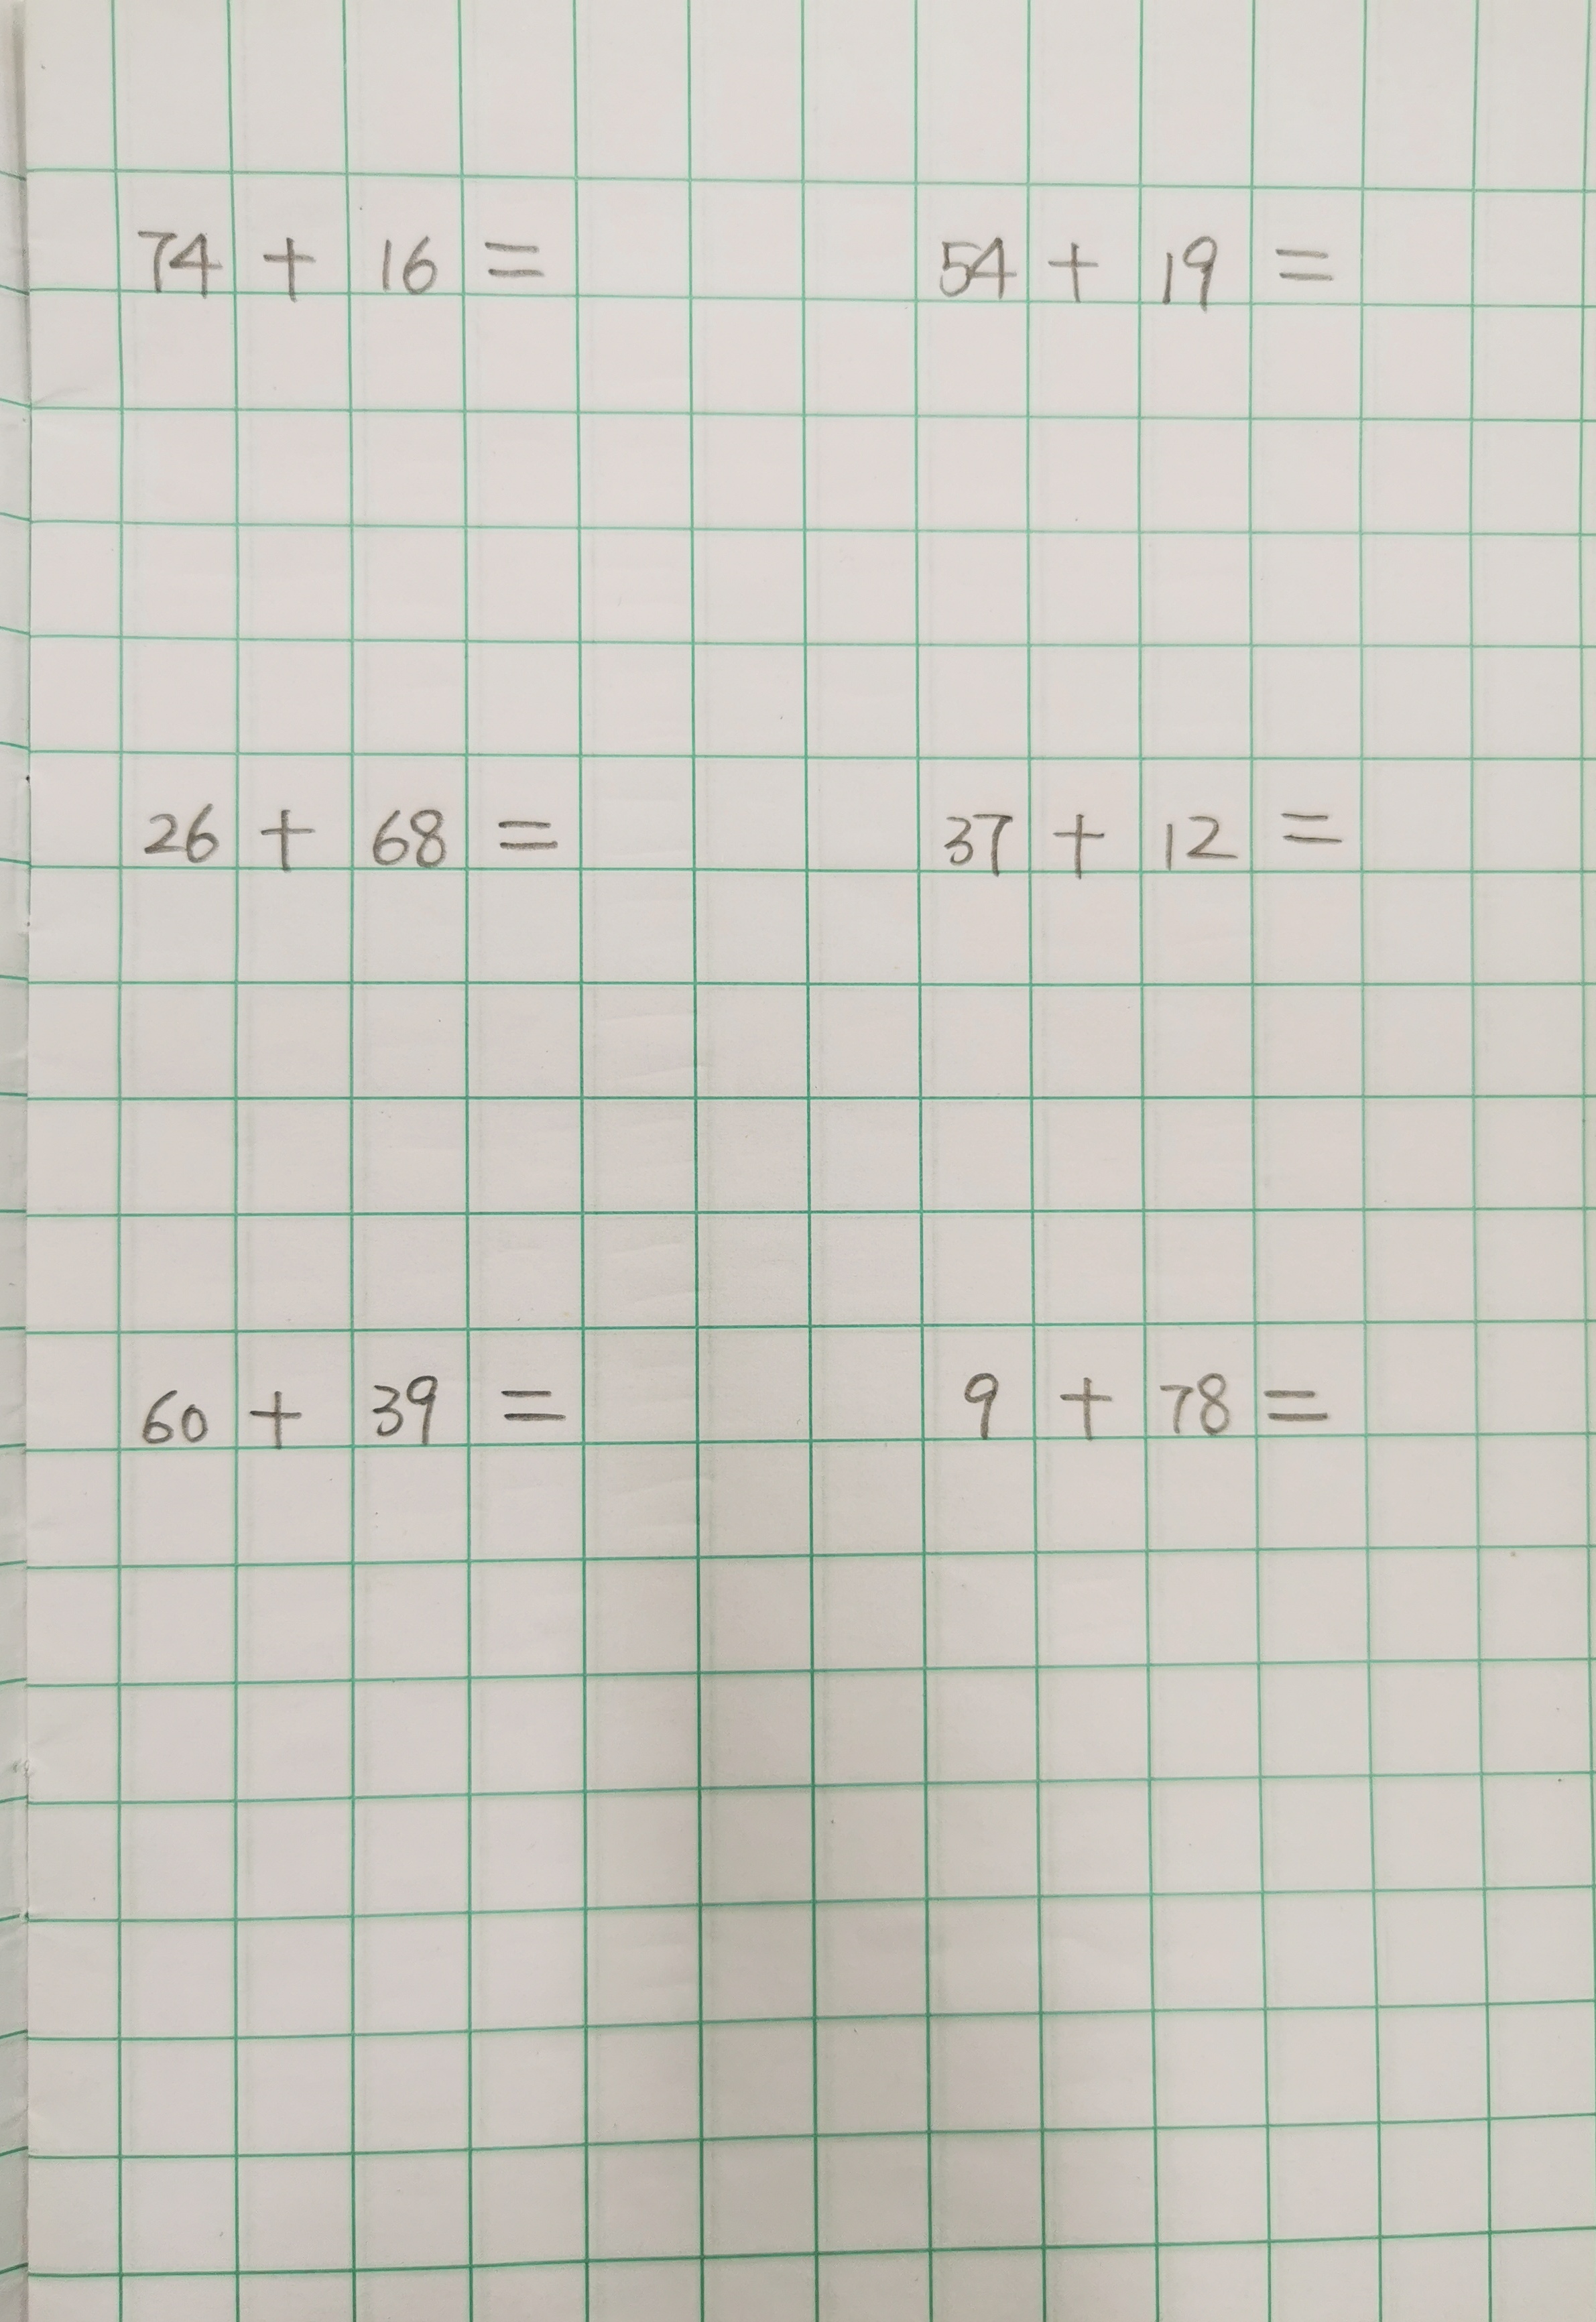 74 + 16 = 54 + 19 =
26 + 68 = 37 + 12 =
60 + 39 = 9 + 78 =